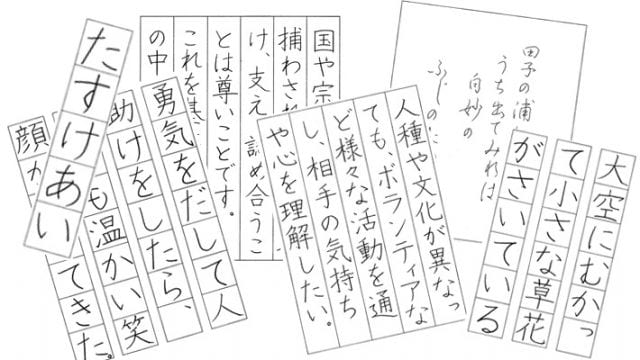 たすけあい
勇気をだして人
助けをしたら、
も温かい笑
顔
てきた。
国や宗
捕わされ
け、支え
認め合うこ
とは尊いことです。
これを
の中
人種や文化が異なっ
ても、ボランティアな
ど様々な活動を通
し、相手の気持ち
や心を理解したい。
田子の浦
うち出てみれは
白妙の
ふじの
大空にむかっ
て小さな草花
がさいている